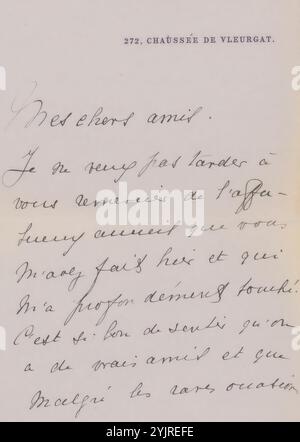 272, CHAUSSÉE DE VLEURGAT.
Mes chers amis.
Je ne veux pas tarder à
vous remercier de l'affec-
tueux accueil que vous
m'avez fait hier et qui
m'a profondément touché.
C'est si bon de sentir qu'on
a de vrais amis et que
malgré les rares occasions
alamy
Image ID: 2YJREFE
www.alamy.com